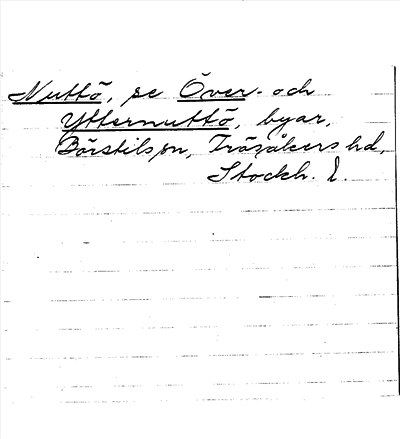 Nuttö, se Över- och
Ytternuttö, byar,
Börstils sn, Frösåkers hd,
Stockh. l.